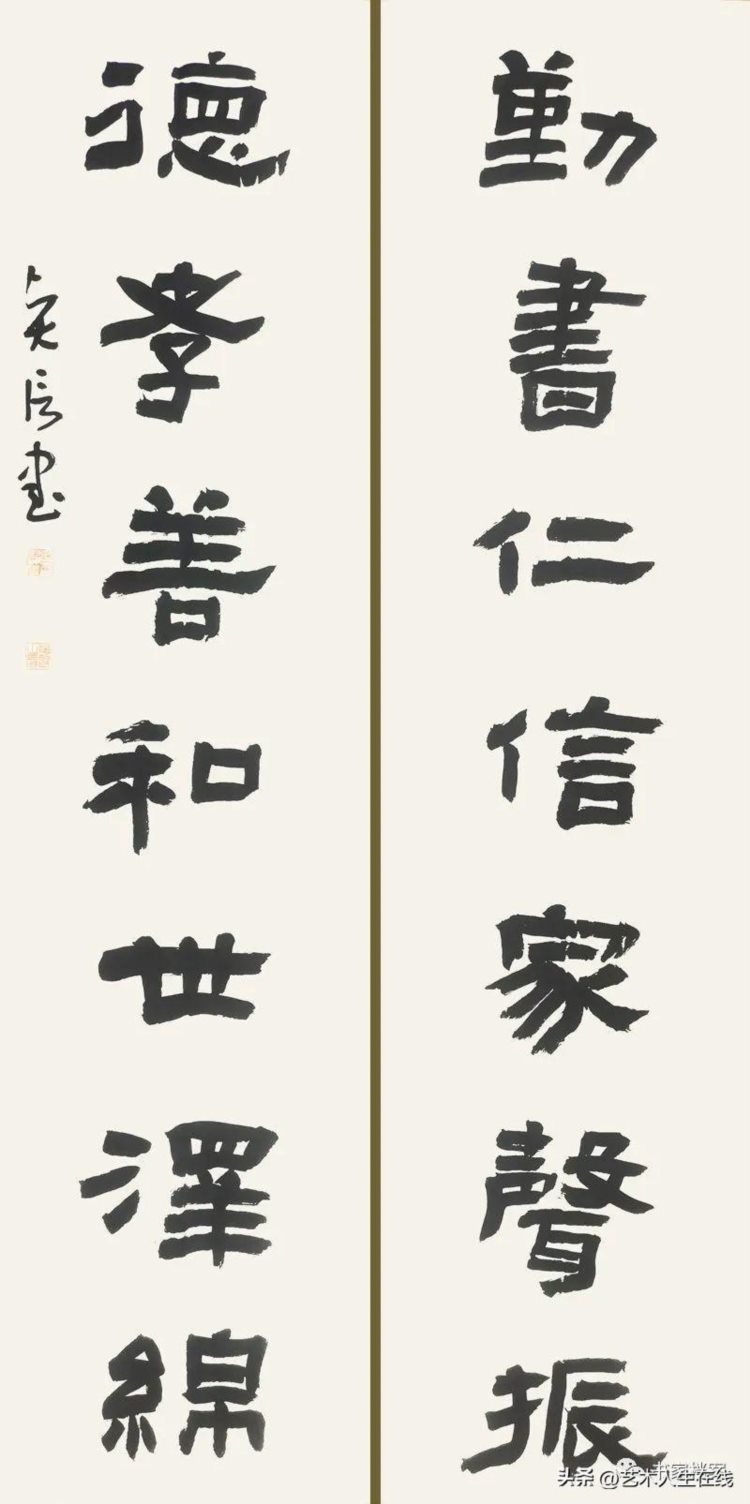 勤書仁信家聲振
德孝善和世澤綿
頭条 @艺术人生在线